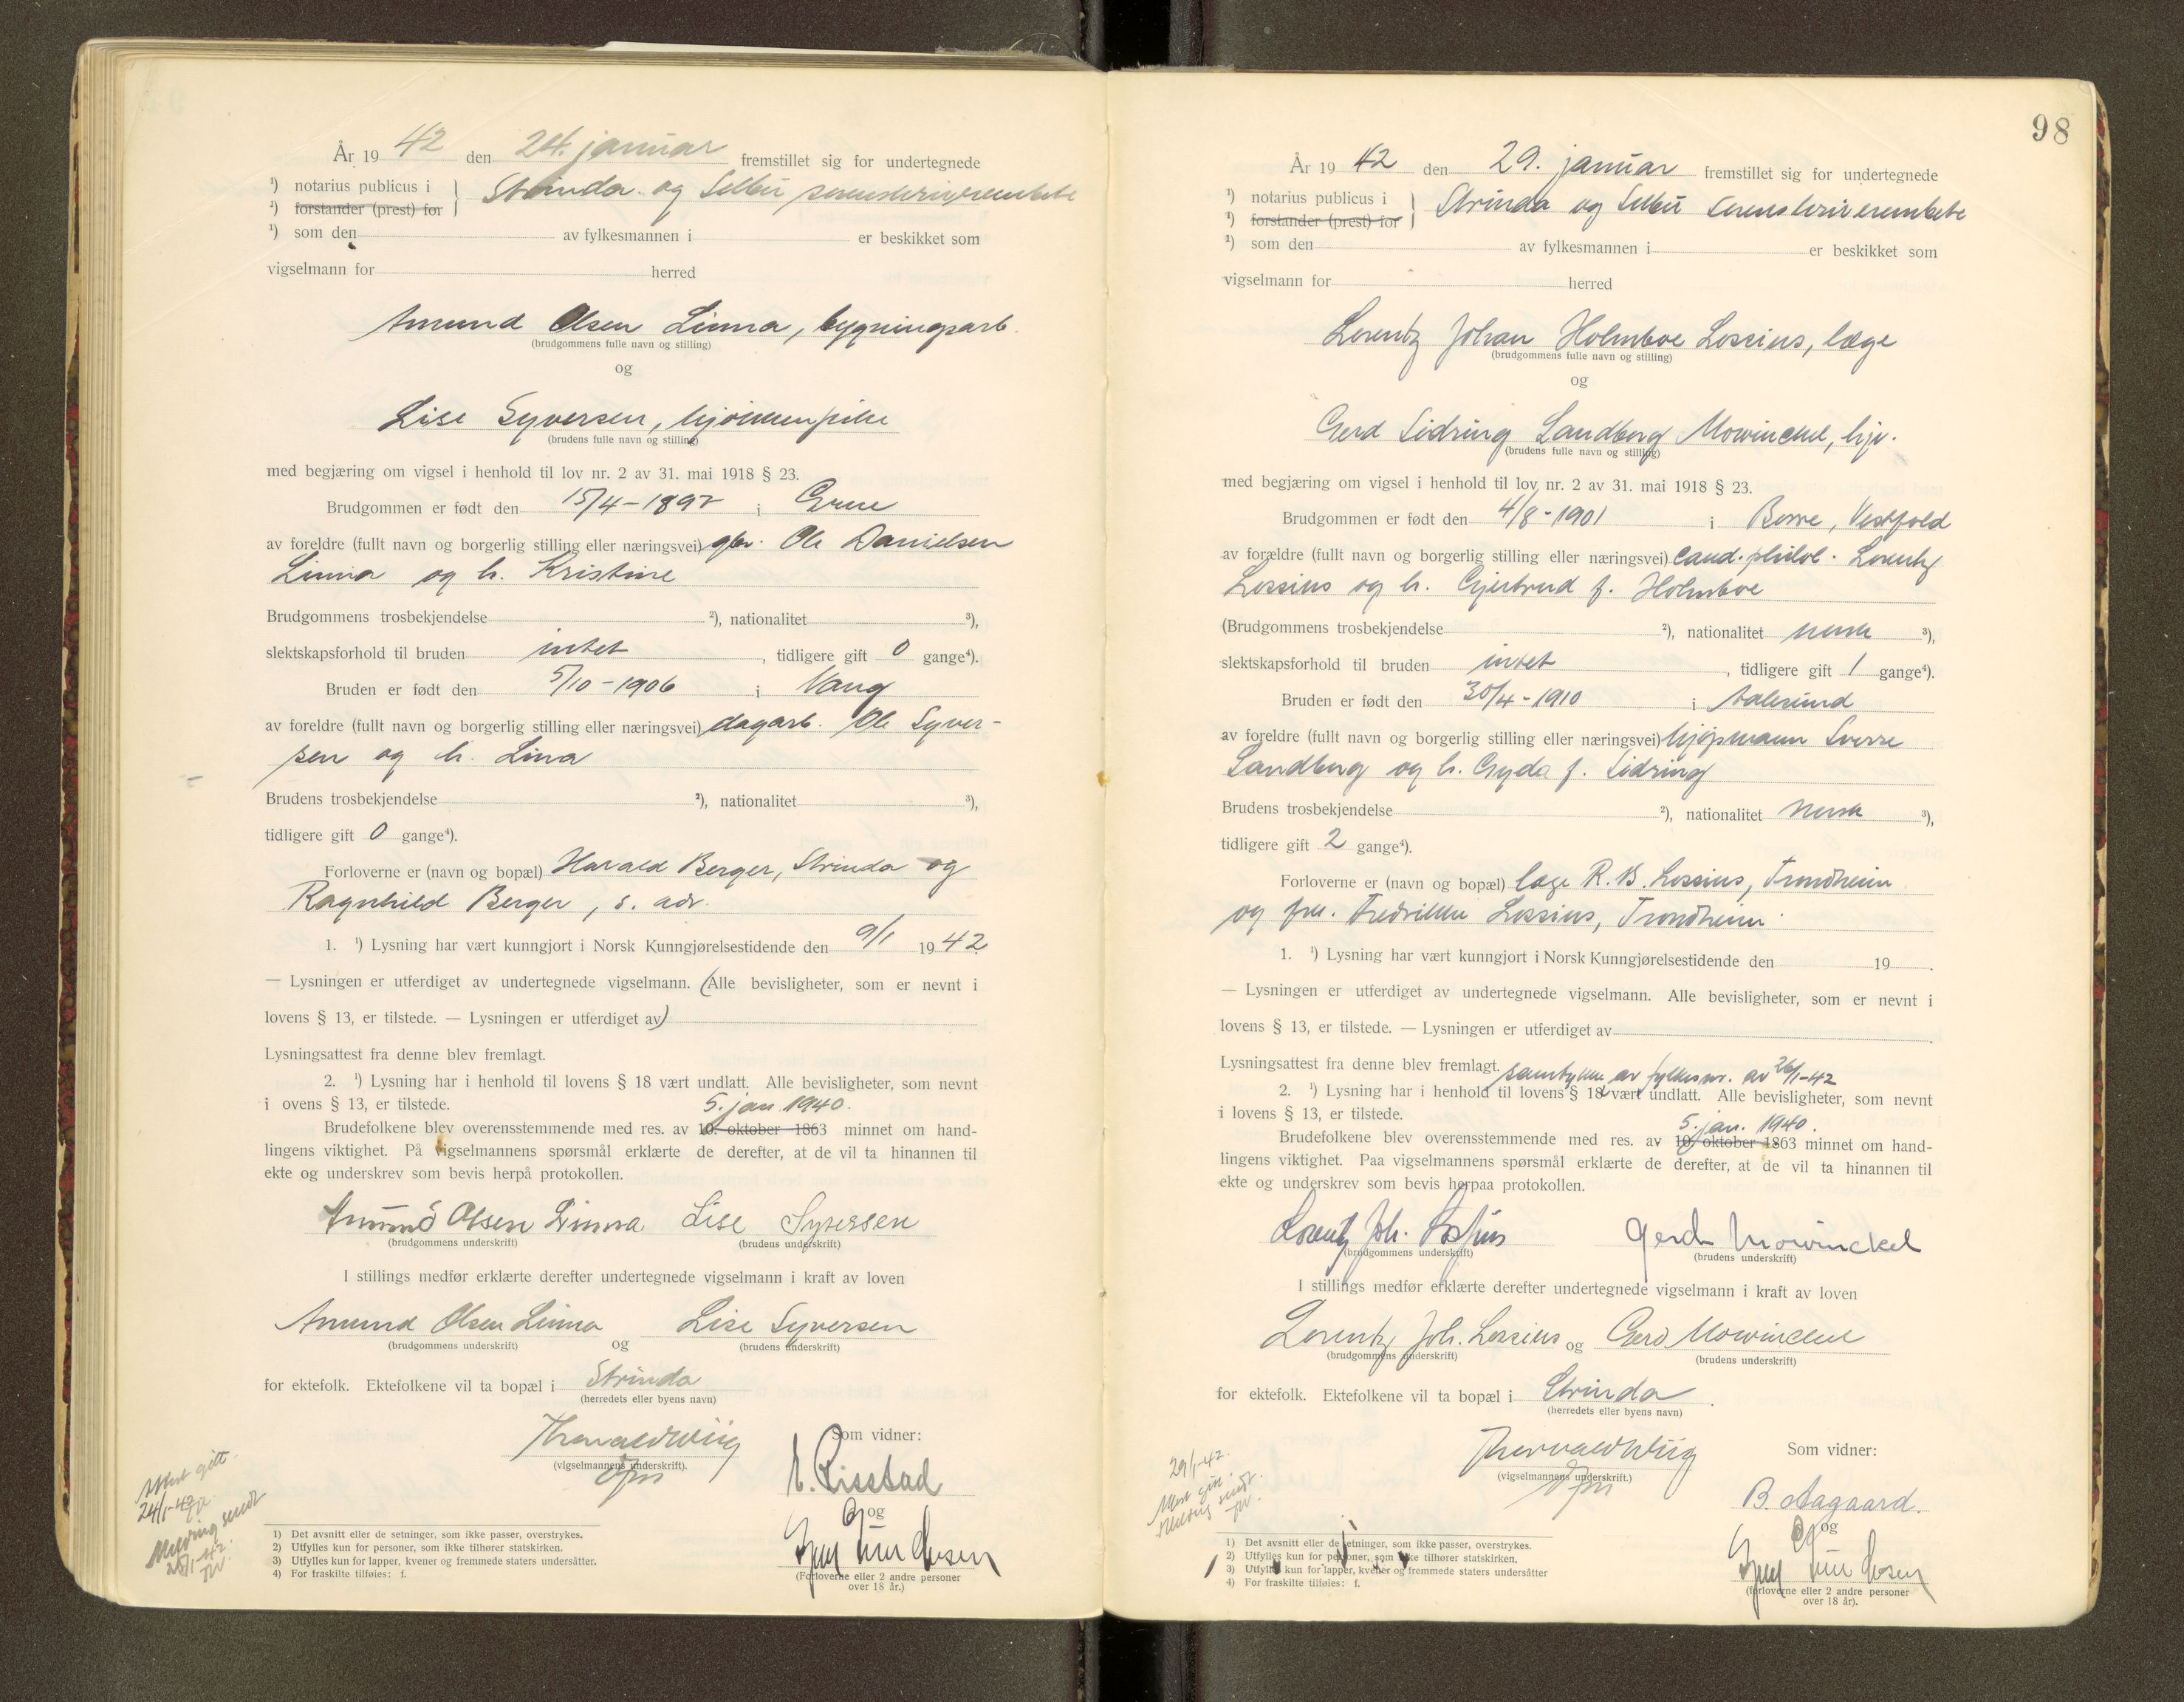 År 1942 den 24. januar fremstillet sig for undertegnede
¹) notarius publicus i } Strinda og Selbu sorenskriverembete
¹) forstander (prest) for
¹) som den av fylkesmannen i er beskikket som
vigselmann for herred
Amund Olsen Linna, bygningsarb.
(brudgommens fulle navn og stilling)
og
Lise Syversen, kjøkkenpike
(brudens fulle navn og stilling)
med begjæring om vigsel i henhold til lov nr. 2 av 31. mai 1918 § 23.
Brudgommen er født den 15/4-1897 i Grue
av foreldre (fullt navn og borgerlig stilling eller næringsvei) gbr. Ole Danielsen
Linna og h. Kristine
Brudgommens trosbekjendelse ²), nationalitet ³),
slektskapsforhold til bruden intet, tidligere gift 0 gange⁴).
Bruden er født den 5/10-1906 i Vang
av foreldre (fullt navn og borgerlig stilling eller næringsvei) dagarb. Ole Syver-
sen og h. Lina
Brudens trosbekjendelse ²), nationalitet ³),
tidligere gift 0 gange⁴).
Forloverne er (navn og bopæl) Harald Berger, Strinda og
Ragnhild Berger, s. adr.
1. ¹) Lysning har vært kunngjort i Norsk Kunngjørelsestidende den 9/1 1942
— Lysningen er utferdiget av undertegnede vigselmann. (Alle bevisligheter, som er nevnt i
lovens § 13, er tilstede. — Lysningen er utferdiget av)
Lysningsattest fra denne blev fremlagt.
2. ¹) Lysning har i henhold til lovens § 18 vært undlatt. Alle bevisligheter, som nevnt
i ovens § 13, er tilstede.
5. jan 1940.
Brudefolkene blev overensstemmende med res. av 10. oktober 1863 minnet om hand-
lingens viktighet. På vigselmannens spørsmål erklærte de derefter, at de vil ta hinannen til
ekte og underskrev som bevis herpå protokollen.
Amund Olsen Linna Lise Syversen
(brudgommens underskrift) (brudens underskrift)
I stillings medfør erklærte derefter undertegnede vigselmann i kraft av loven
Amund Olsen Linna Lise Syversen
(brudgommens underskrift) og (brudens underskrift)
for ektefolk. Ektefolkene vil ta bopæl i Strinda
(herredets eller byens navn)
Thorvald Wiig
(vigselmannens underskrift).
Som vidner:
Lisstad
og
(Forloverne eller 2 andre personer
over 18 år.)
Attest gitt.
24/1-42
Melding sendt
28/1-42.
TW.
1) Det avsnitt eller de setninger, som ikke passer, overstrykes.
2) Utfylles kun for personer, som ikke tilhører statskirken.
3) Utfylles kun for lapper, kvener og fremmede staters undersåtter.
4) For fraskilte tilføies: f.
98
År 1942 den 29. januar fremstillet sig for undertegnede
¹) notarius publicus i } Strinda og Selbu sorenskriverembete
¹) forstander (prest) for
¹) som den av fylkesmannen i er beskikket som
vigselmann for herred
Lorentz Johan Holmboe Lossius, læge
(brudgommens fulle navn og stilling)
og
Gerd Sidring Landberg Mowinckel, hjv.
(brudens fulle navn og stilling)
med begjæring om vigsel i henhold til lov nr. 2 av 31. mai 1918 § 23.
Brudgommen er født den 4/8-1901 i Borre, Vestfold
av forældre (fullt navn og borgerlig stilling eller næringsvei) cand. philol. Lorentz
Lossius og h. Gjertrud f. Holmboe
(Brudgommens trosbekjendelse ²), nationalitet norsk ³),
slektskapsforhold til bruden intet, tidligere gift 1 gange⁴).
Bruden er født den 30/4-1910 i Aalesund
av foreldre (fullt navn og borgerlig stilling eller næringsvei) kjøpmann Sverre
Landberg og h. Gyda f. Sidring
Brudens trosbekjendelse ²), nationalitet norsk ³),
tidligere gift 2 gange⁴).
Forloverne er (navn og bopæl) læge R. B. Lossius, Trondheim
og frk. Fredrikke Lossius, Trondheim.
1. ¹) Lysning har vært kunngjort i Norsk Kunngjørelsestidende den 19 .
— Lysningen er utferdiget av undertegnede vigselmann. Alle bevisligheter, som er nevnt i
lovens § 13, er tilstede. — Lysningen er utferdiget av .
Lysningsattest fra denne blev fremlagt. samtykke av fylkesm. av 26/1-42
2. ¹) Lysning har i henhold til lovens § 18 vært undlatt. Alle bevisligheter, som nevnt
i lovens § 13, er tilstede.
5. jan. 1940.
Brudefolkene blev overensstemmende med res. av 10 oktober 1863 minnet om hand-
lingens viktighet. Paa vigselmannens spørsmål erklærte de derefter, at de vil ta hinannen til
ekte og underskrev som bevis herpaa protokollen.
Lorentz Joh. Lossius Gerd Mowinckel
(brudgommens underskrift) (brudens underskrift)
I stillings medfør erklærte derefter undertegnede vigselmann i kraft av loven
Lorentz Joh. Lossius og Gerd Mowinckel
(brudgommens underskrift) (brudens underskrift)
for ektefolk. Ektefolkene vil ta bopæl i Strinda .
(herredets eller byens navn)
Thorvald Wiig
(vigselmannens underskrift.)
Som vidner:
B. Aagaard.
og
(forloverne eller 2 andre personer
over 18 år).
29/1-42.
Attest gitt.
Melding sendt.
TW.
1) Det avsnitt eller de setninger, som ikke passer, overstrykes.
2) Utfylles kun for personer, som ikke tilhører statskirken.
3) Utfylles kun for lapper, kvener og fremmede staters undersåtter
4) For fraskilte tilføies: f.